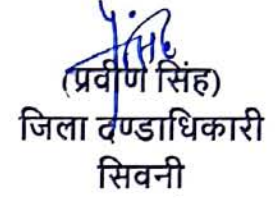 (प्रवीण सिंह)
जिला दण्डाधिकारी
सिवनी